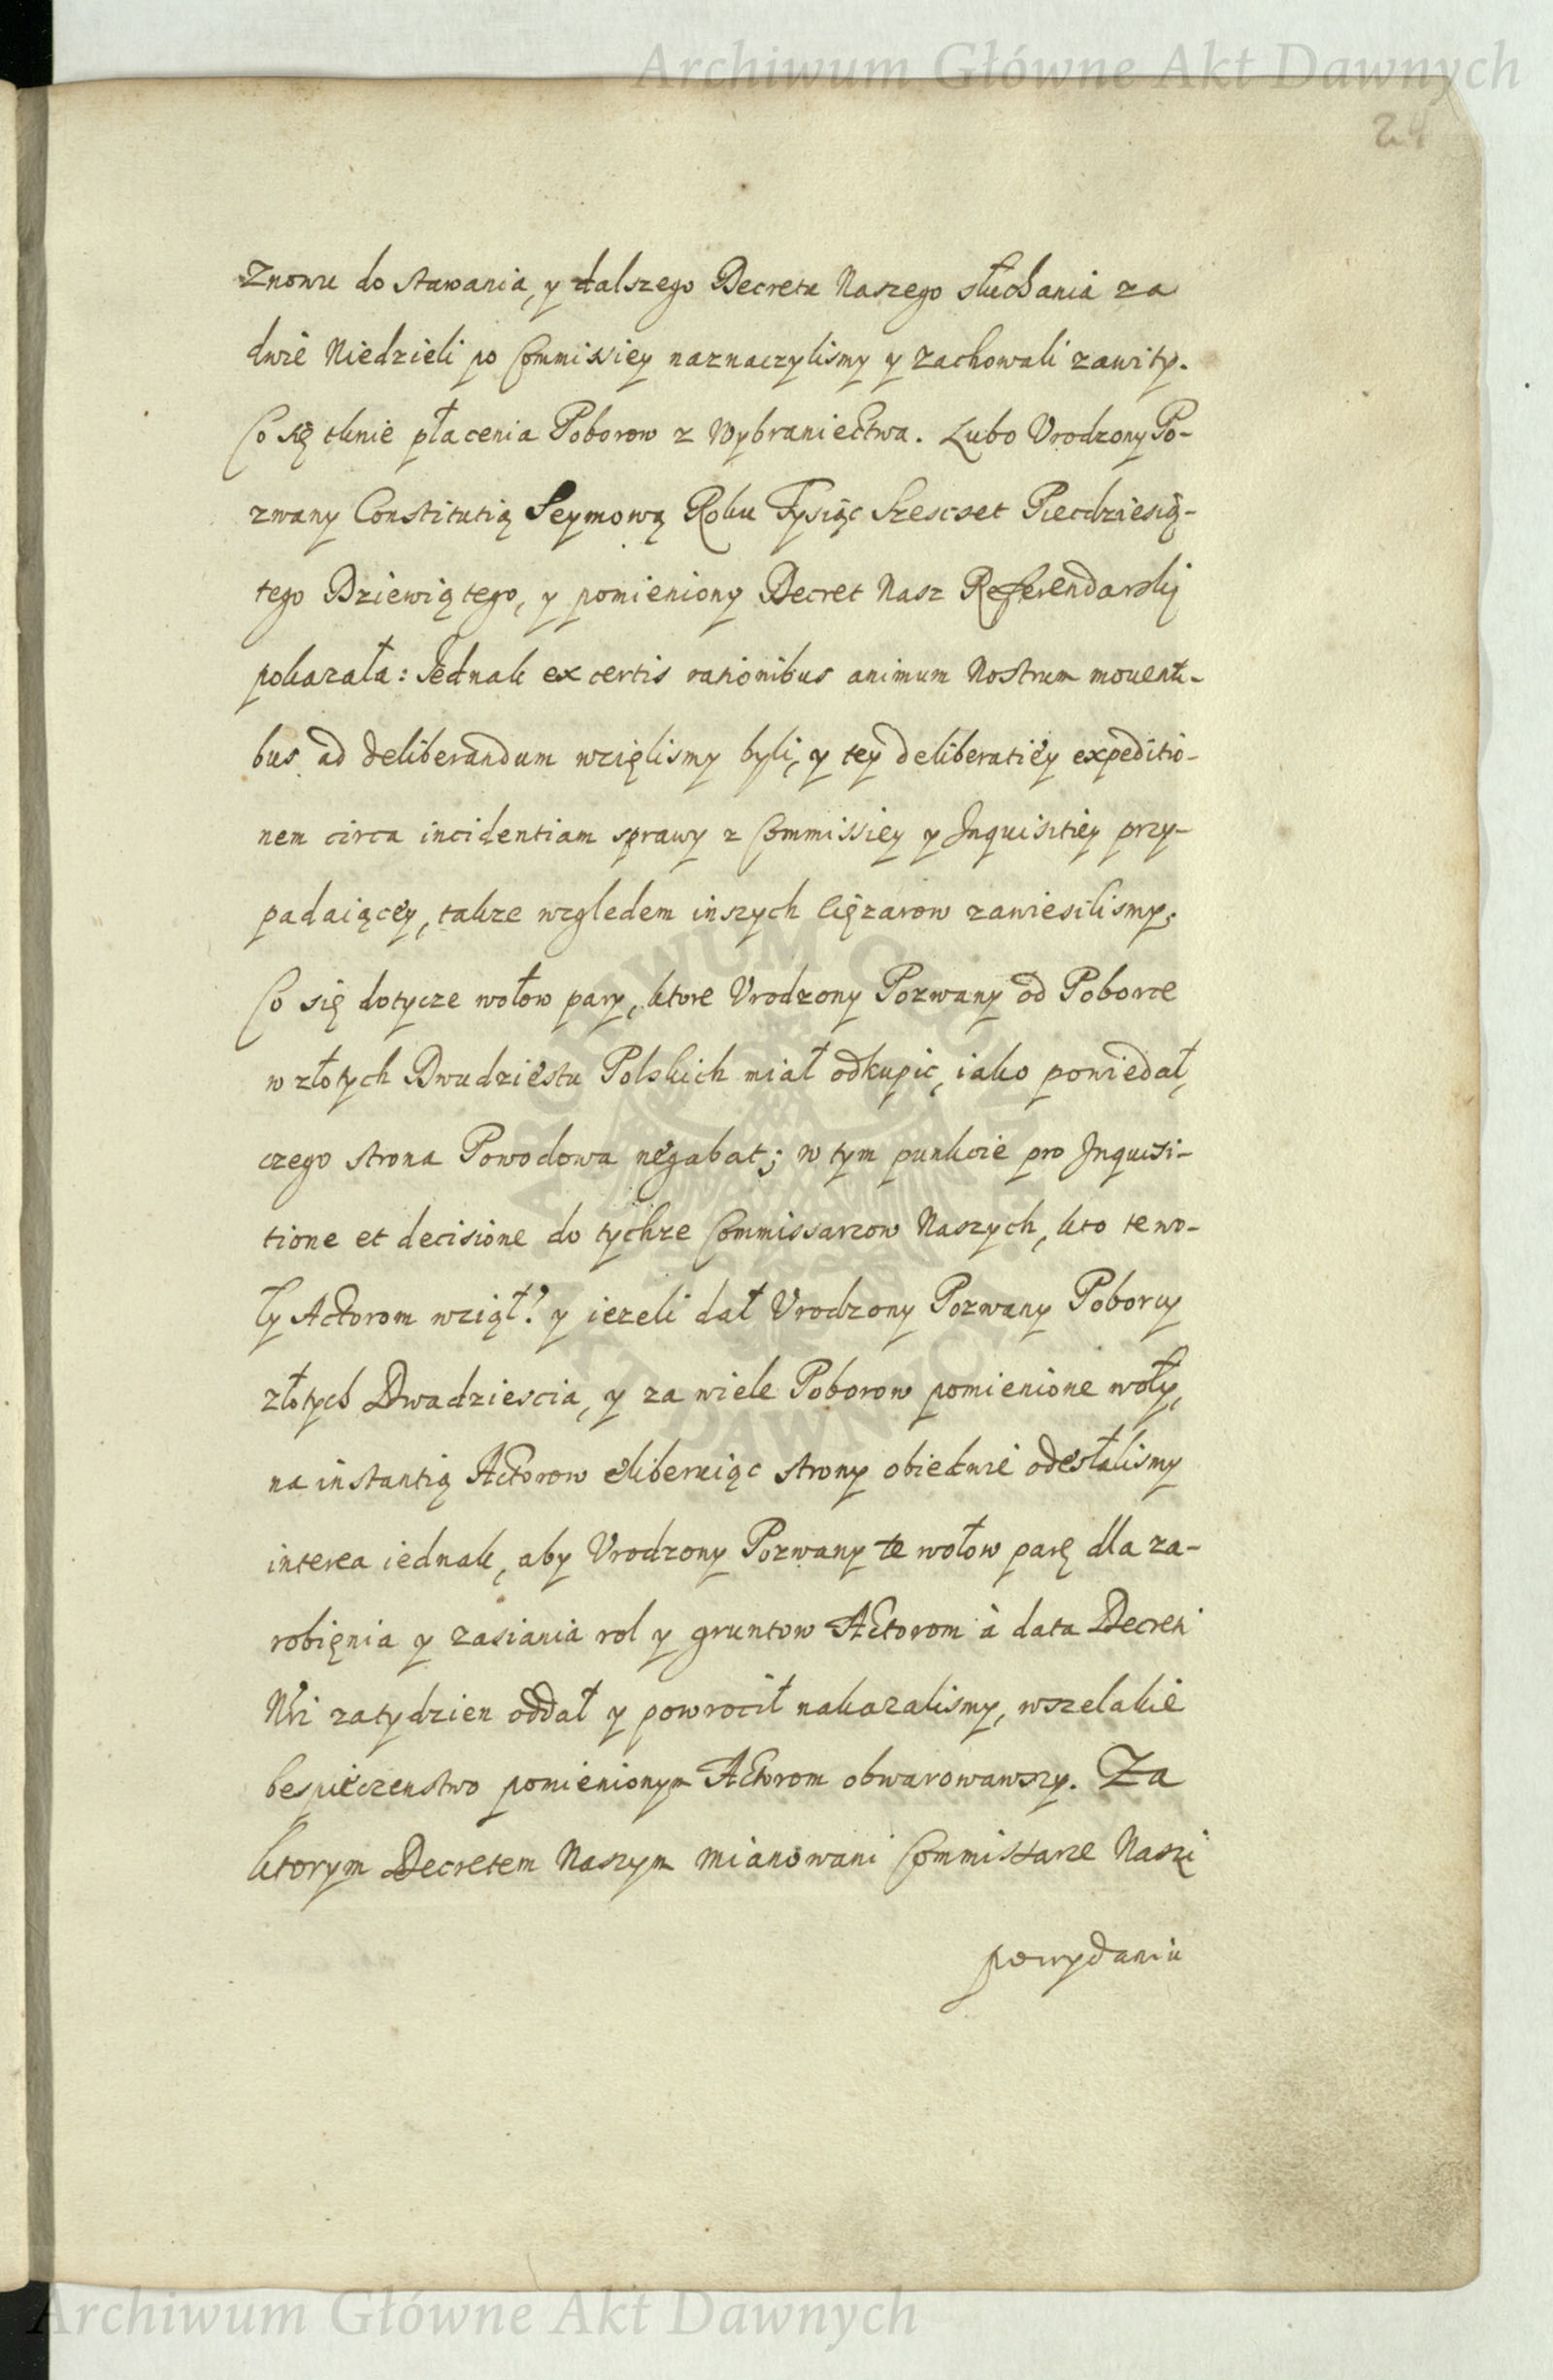 Archiwum Główne Akt Dawnych
24
Znowu do stawania, y dalszego Decretu Naszego słuchania za
dwie Niedzieli po Commissiey naznaczylismy y zachowali zawity.
Co się tknie płacenia Poborow z Wybraniectwa. Lubo Vrodzony Po-
zwany Constitutią Seymową Roku Tysiąc Szescset Piecdziesią-
tego Dziewiątego, y pomieniony Decret Nasz Referendarskj
pokazała: Jednak ex certis rationibus animum Nostrum mouenti-
bus ad deliberandum wzięlismy byli, y tey deliberatiey expeditio-
nem circa incidentiam sprawy z Commissiey y Inquisitiey przy-
padaiącey, takze względem inszych cięzarow zawiesilismy.
Co się dotycze wołow pary, ktore Vrodzony Pozwany od Poborce
w złotych Dwudziestu Polskich miał odkupic, iako powiedał,
czego strona Powodowa negabat; w tym punkcie pro Inquisi-
tione et decisione do tychze Commissarzow Naszych, kto te wo-
ły Actorom wziął? y iezeli dał Vrodzony Pozwany Poborcy
złotych Dwadziescia, y za wiele Poborow pomienione woły,
na instantią Actorow eliberuiąc strony obiedwie odesłalismy
interea iednak, aby Vrodzony Pozwany te wołow parę dla za-
robięnia y zasiania rol y gruntow Actorom à data Decreti
Nri za tydzien oddał y powrocił nakazalismy, wszelakie
bespieczenstwo pomienionym Actorom obwarowawszy. Za
ktorym Decretem Naszym mianowani Commissarze Naszi
po wydaniu
ARCHIWUM GŁÓWNE AKT DAWNYCH
Archiwum Główne Akt Dawnych